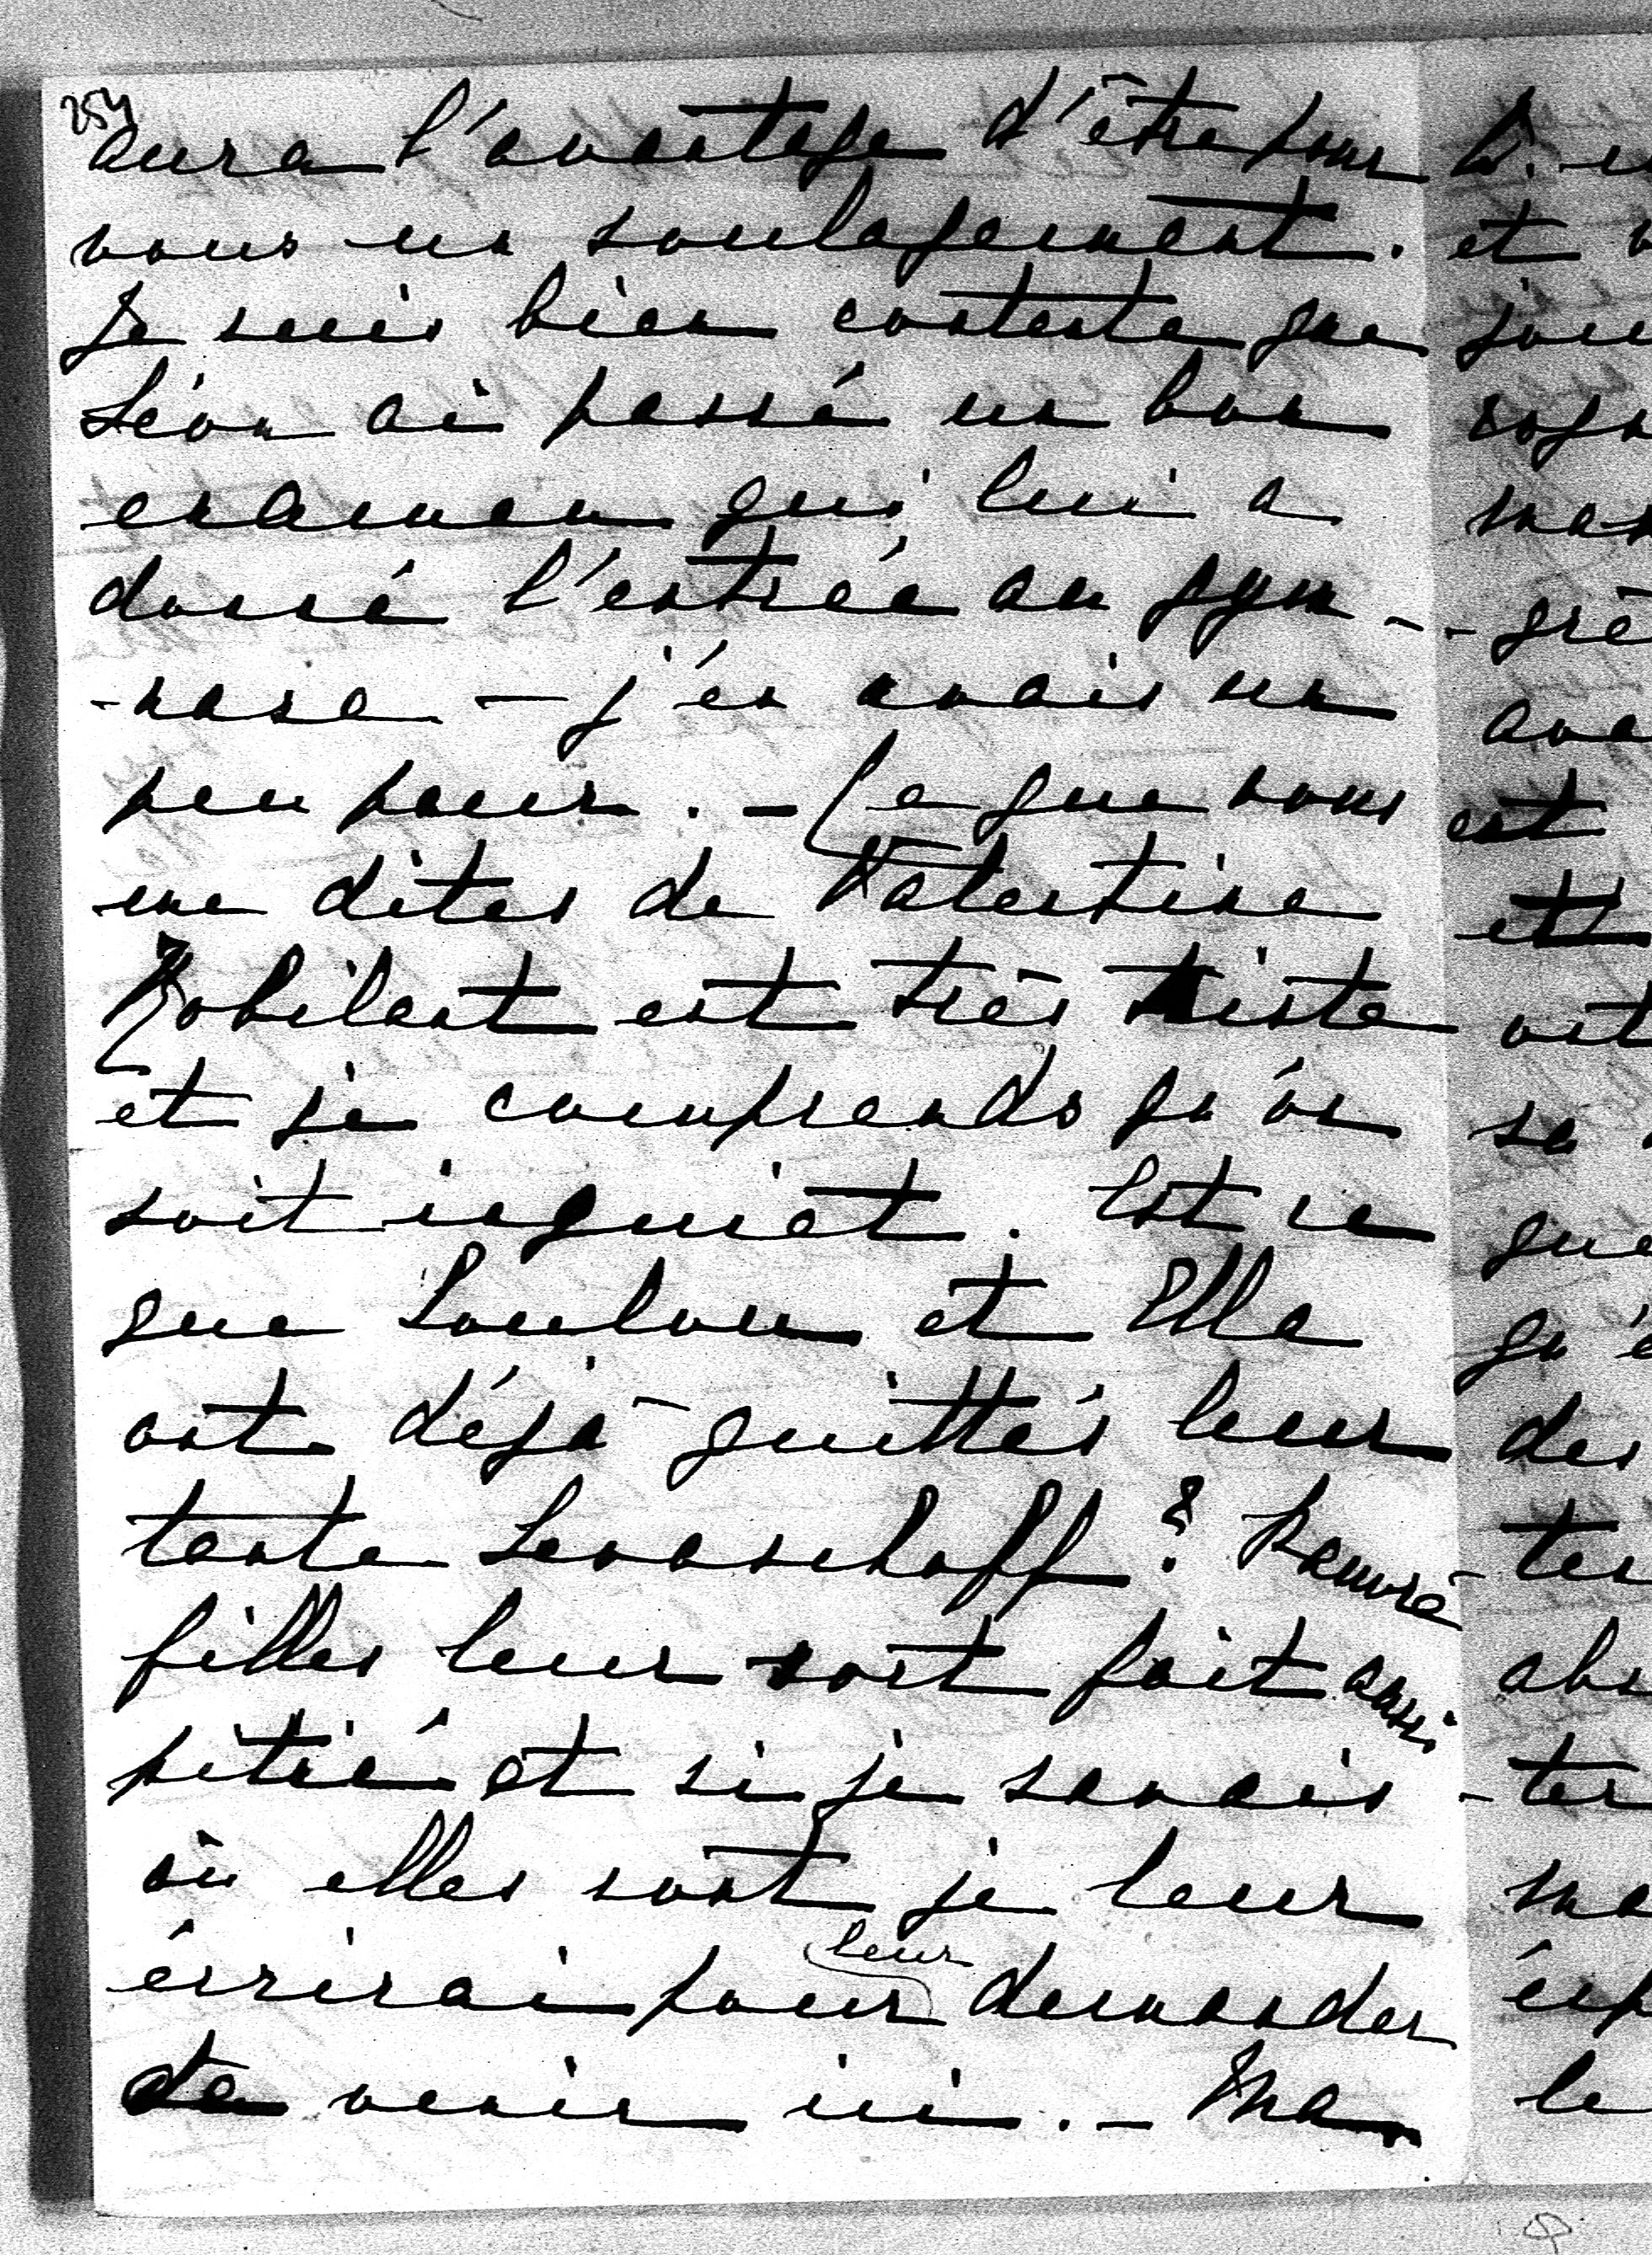 254
aura l'avantage d'être pour
vous un soulagement.
Je suis bien contente que
Léon ai passé un bon
examen qui lui a
donné l'entrée au gym-
-nase — j'en avais un
peu peur. — Ce que vous
me dites de Valentine
Robilant est très triste
et je comprends qu'on
soit inquiet. Est ce
que Loulou et Ella
ont déjà quittés leur
tante Levaschoff? Pauvre
filles leur sort fait aussi
pitié et si je savais
où elles sont je leur
leur
écrirai pour demander
de venir ici. — Ma
et
est
et
des
le